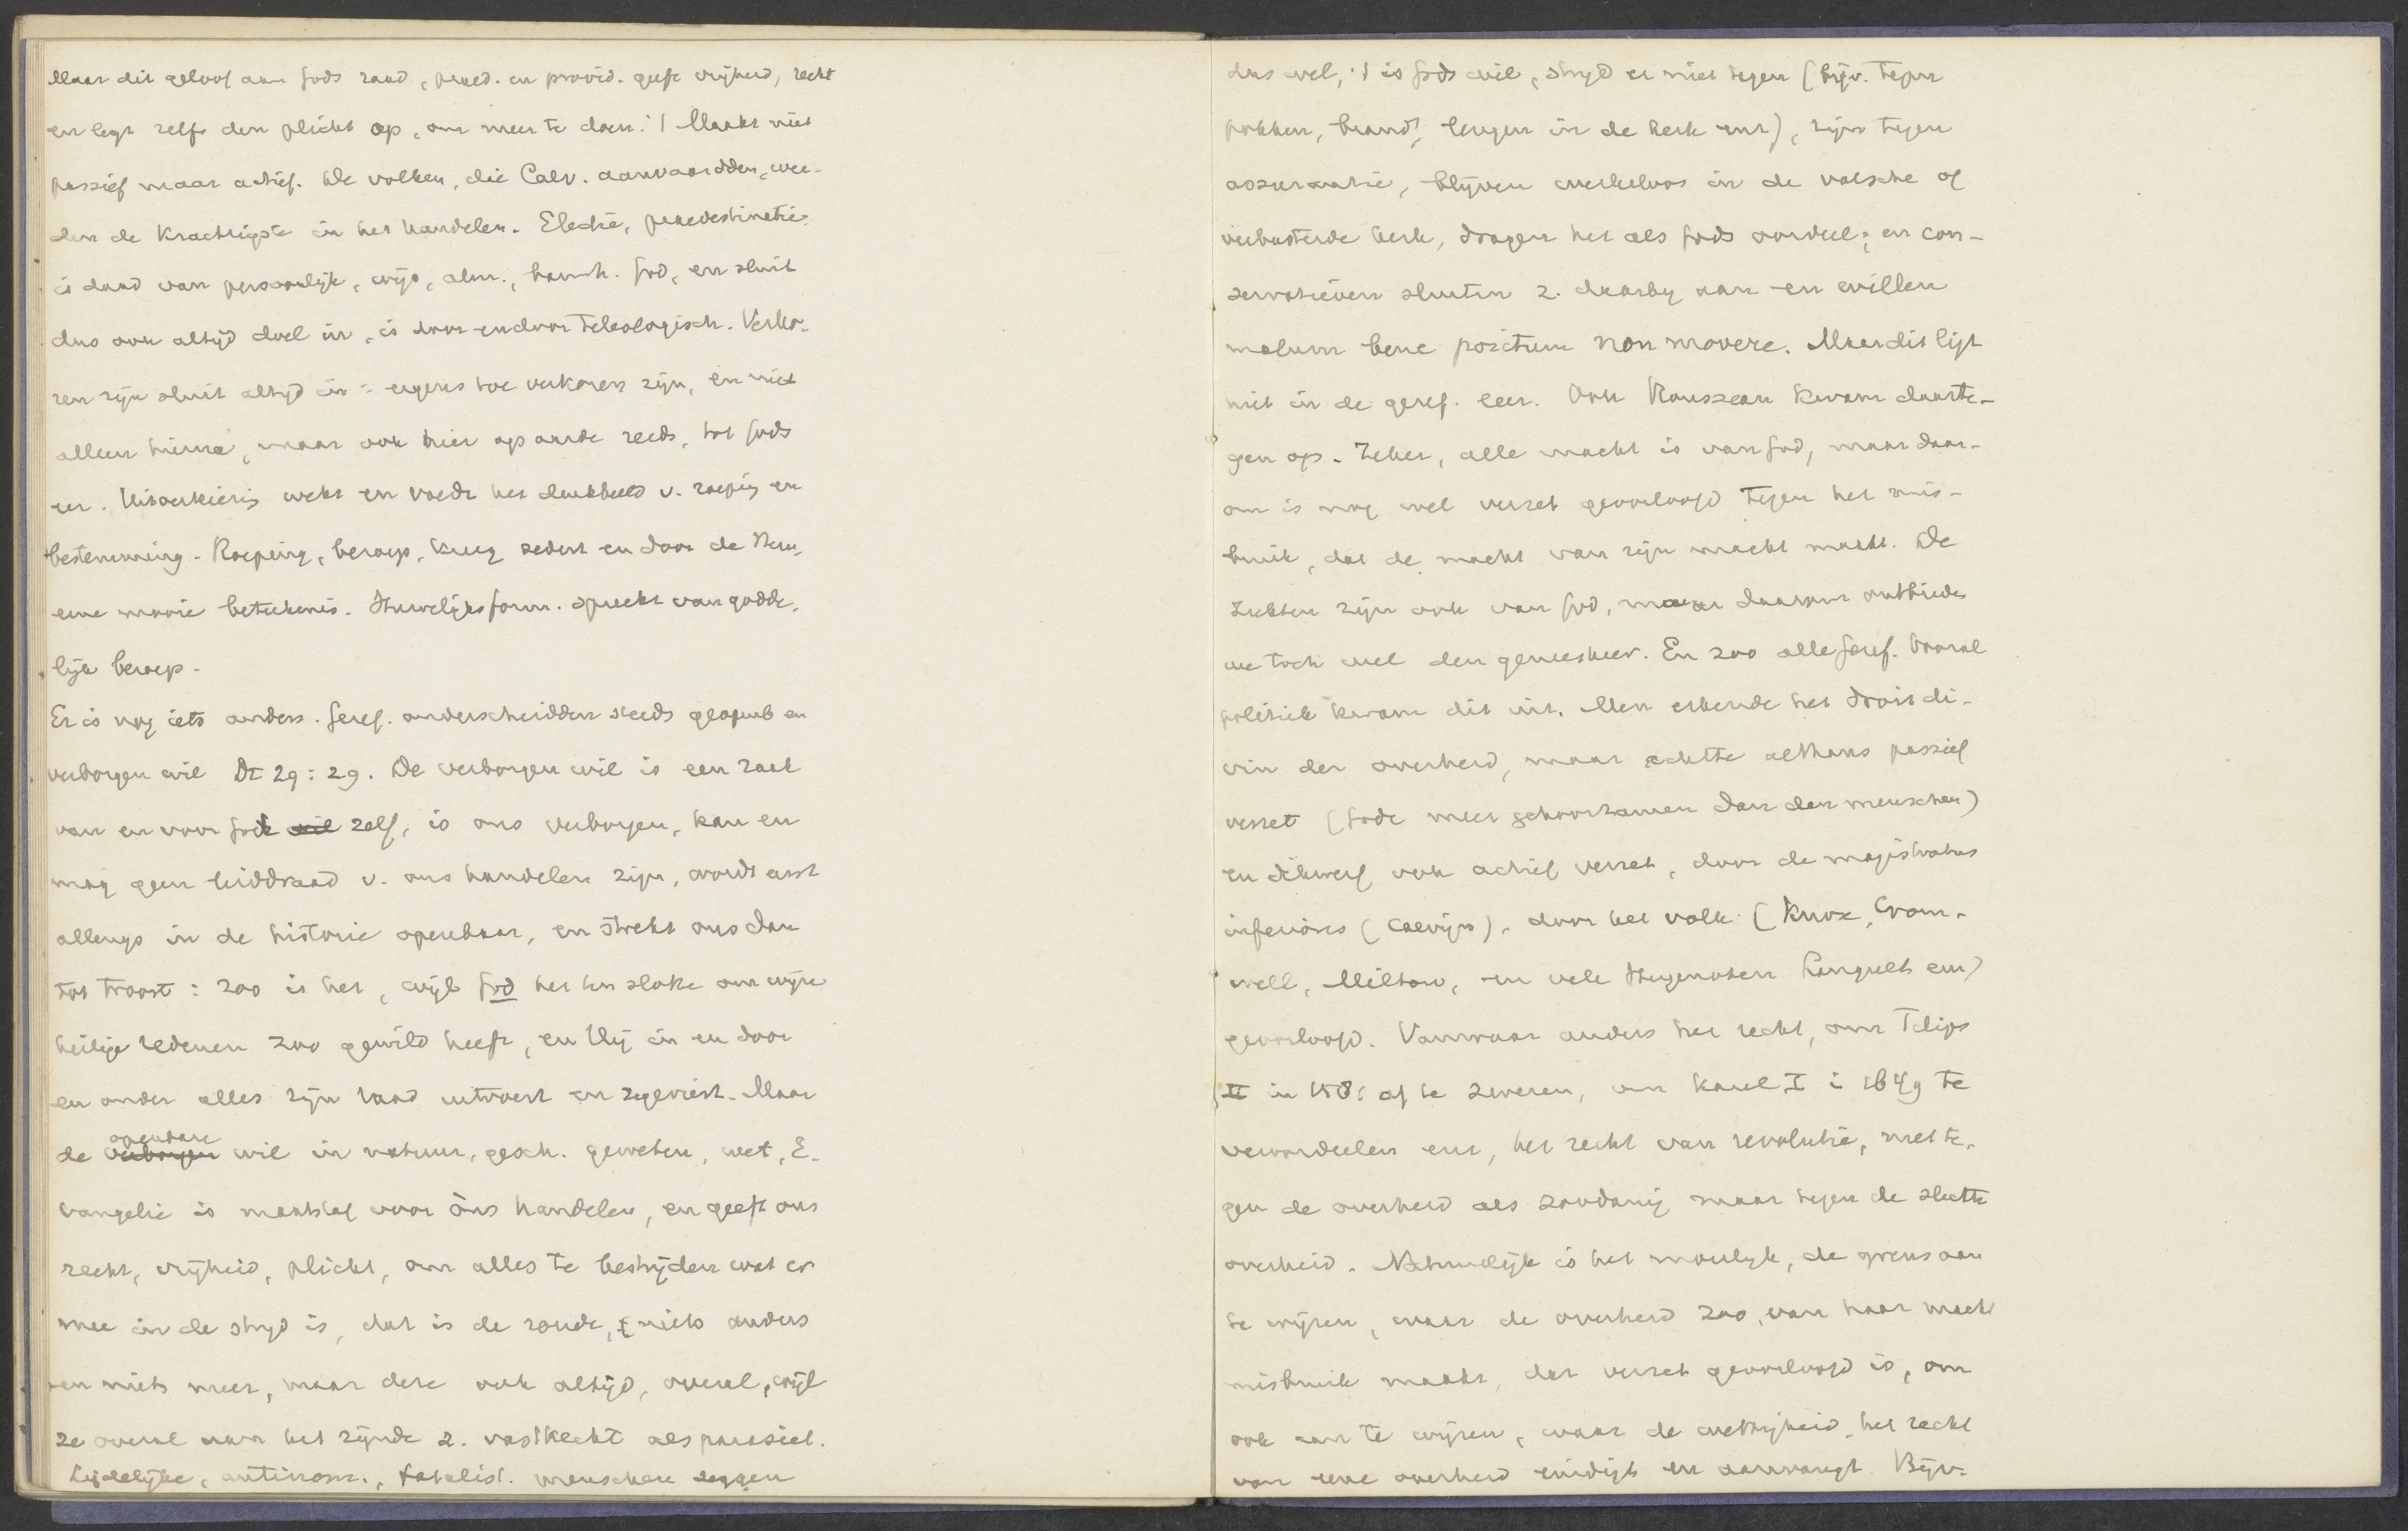 Maar dit geloof aan Gods raad, praed. en provid. geeft vrijheid, recht
en legt zelfs den plicht op, om meer te doen! 't Maakt niet
passief maar actief. De volken, die Calv. aanvaardden, wer-
den de krachtigste in het handelen. Electie, praedestinatie
is daad van persoonlijk, wijs, alm., barmh. God, en sluit
dus ook altijd doel in, is door-en-door teleologisch. Verko-
ren zijn sluit altijd in: ergens toe verkoren zijn, en niet
alleen hierna, maar ook hier op aarde reeds, tot Gods
eer. Uitverkiezing wekt en voedt het denkbeeld v. roeping en
bestemming. Roeping, beroep, kreeg sedert en door de Ref.
eene mooie beteekenis. Huwelijksform. spreekt van godde-
lijk beroep.
Er is nog iets anders. Geref. onderscheidden steeds geopenb en
verborgen wil Dt 29:29. De verborgen wil is een zaak
van en voor God wil zelf, is ons verborgen, kan en
mag geen leiddraad v. ons handelen zijn, wordt eerst
allengs in de historie openbaar, en strekt ons dan
tot troost: zoo is het, wijl God het ten slotte om wijze
heilige redenen zoo gewild heeft, en Hij in en door
en onder alles zijn raad uitvoert en zegeviert. Maar
de verborgen openbare wil in natuur, gesch. geweten, wet, E-
vangelie is maatstaf voor óns handelen, en geeft ons
recht, vrijheid, plicht, om alles te bestrijden wat er
mee in de strijd is, dat is de zonde, niets anders
en niets meer, maar deze ook altijd, overal, wijl
ze overal aan het zijnde z. vastkecht als parasiet.
Lijdelijke, antinom., fatalist. menschen zeggen
dus wel, 't is Gods wil, strijd er niet tegen (bijv. tegen
pokken, brand, leugen in de kerk enz), zijn tegen
assurantie, blijven werkeloos in de valsche of
verbasterde kerk, dragen het als Gods oordeel; en con-
servatieven sluiten z. daarbij aan en willen
malum bene positum non movere. Maar dit ligt
niet in de geref. leer. Ook Rousseau kwam daarte-
gen op. Zeker, alle macht is van God, maar daar-
om is nog wel verzet geoorloofd tegen het mis-
bruik, dat de macht van zijn macht maakt. De
ziekten zijn ook van God, maar daarom ontbieden
we toch wel den geneesheer. En zoo alle Geref. Vooral
politiek kwam dit uit. Men erkende het droit di-
vin der overheid, maar achtte althans passief
verzet (Gode meer gehoorzamen dan den menschen)
en dikwerf ook actief verzet, door de magistratus
inferiores (Calvijn), door het volk (Knox, Crom-
well, Milton, en vele Hugenoten Languet enz)
geoorloofd. Vanwaar anders het recht, om Filips
II in 1581 af te zweren, om Karel I i 1649 te
veroordeelen enz, het recht van revolutie, niet te-
gen de overheid als zoodanig maar tegen de slechte
overheid. Natuurlijk is het moeilijk, de grens aan
te wijzen, waar de overheid zoo, van haar macht
misbruik maakt, dat verzet geoorloofd is, om
ook aan te wijzen, waar de wettigheid, het recht
van eene overheid eindigt en aanvangt. Bijv.